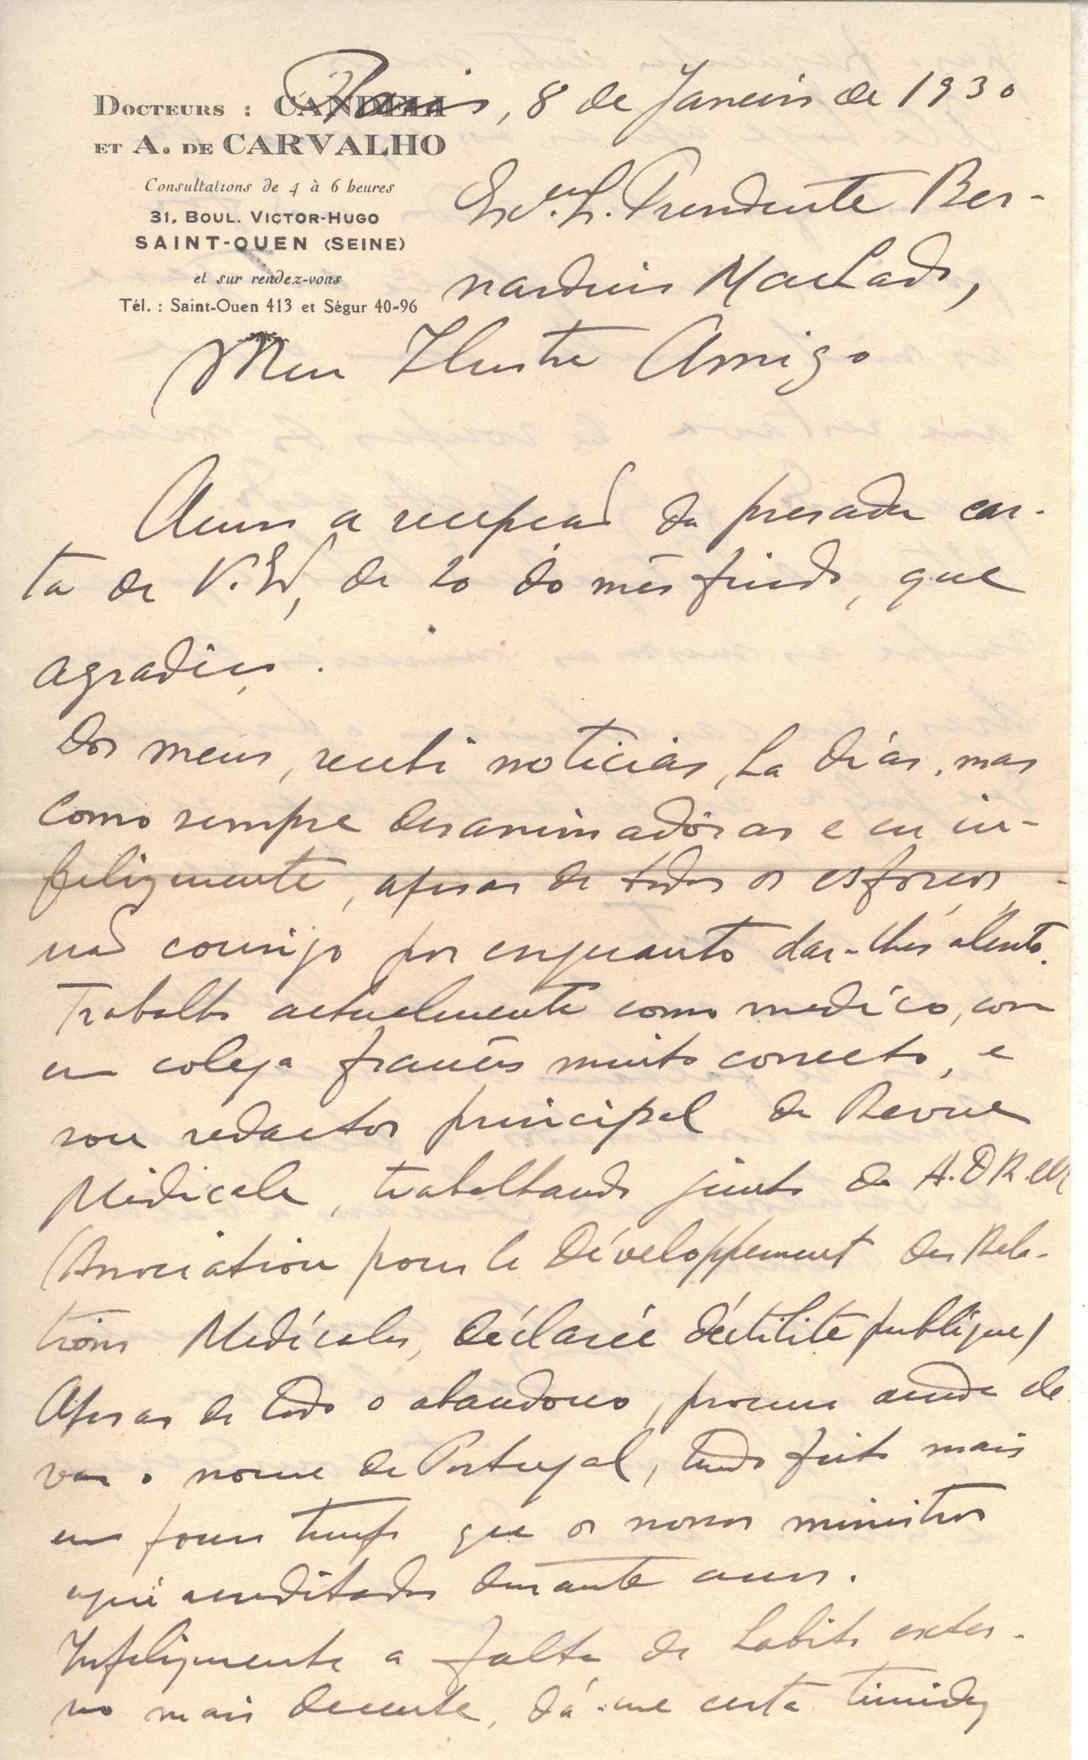 DOCTEURS : CANDILLI
ET A. DE CARVALHO
Consultations de 4 à 6 heures
31, BOUL. VICTOR-HUGO
SAINT-OUEN (SEINE)
et sur rendez-vous
Tél. : Saint-Ouen 413 et Ségur 40-96
Paris, 8 de Janeiro de 1930
Presidente Ber-
nardino Machado,
Meu Ilustre Amigo
Acuso a recepção da presada car-
ta de V. Exª, de 20 do mês findo, que
agradeço.
Dos meus, recebi noticias, ha dias, mas
como sempre desanimadôras e eu in-
felizmente, apesar de todos os esforços,
não consigo por enquanto dar-lhes alento.
Trabalho actualmente como medico, com
um colega francês muito correcto, e
sou redactor principal da Revue
Médicale, trabalhando junto da A.D.R.M
(Association pour le Développement des Rela-
tions Médicales, déclarée d'utilité publique)
Apesar de todo o abandono, procuro ainda ele
var o nome de Portugal, tendo feito mais
em pouco tempo que os nossos ministros
aqui acreditados durante anos.
Infelizmente a falta de habito exter-
no mais decente, dá-me certa timidez